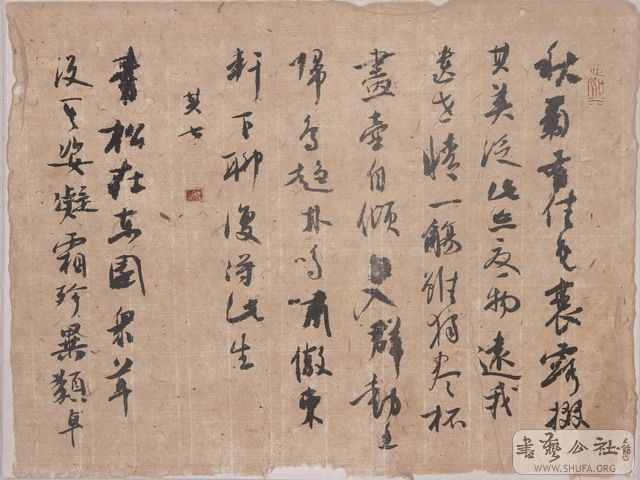 秋菊有佳色裛露掇
其英泛此忘憂物遠我
遺世情一觴雖獨尽杯
盡壺自傾日入群動息
歸鳥趨林鳴嘯傲東
軒下聊復得此生
其七
青松在東園衆草
没其姿凝霜殄異類卓
書藝公社
WWW.SHUFA.ORG